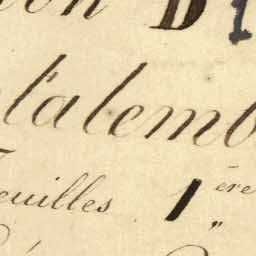 on D 1
'alemb
euilles 1ère